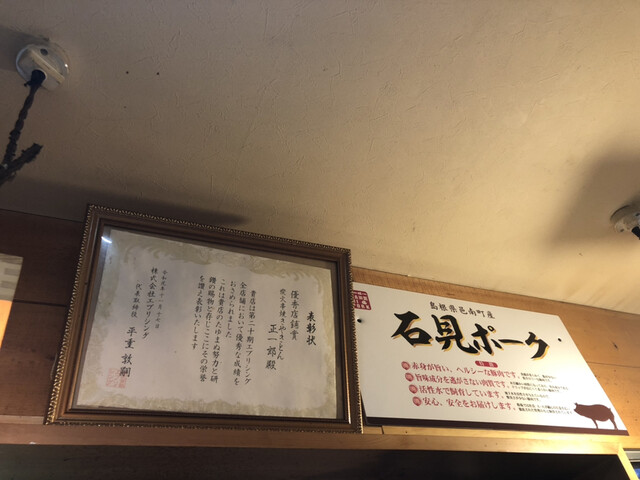 表彰状
優秀店舗賞
炭火串焼きやきとん
正一郎殿
貴店は第二十期エブリシング
全店舗において優秀な成績を
おさめられました
これは貴店のたゆまぬ努力と研
鑽の賜物と存じここにその栄誉
を讃え表彰いたします
令和元年十一月十六日
株式会社エブリシング
代表取締役 平重敦嗣
島根県邑南町産
石見ポーク
特徴
赤身が旨い、ヘルシーな豚肉です。
旨味成分を逃がさない肉質です。
活性水で飼育しています。
安心、安全をお届けします。